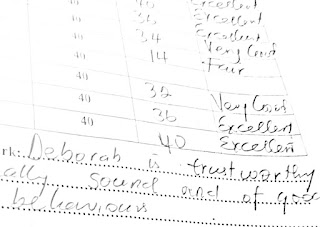 40 Excellent
40 36 Excellent
40 34 Excellent
40 14 Very Good
40 Fair
40 35
40 36 Very Good
40 40 Excellent
Excellent
rk: Deborah is trustworthy
ally sound and of good
behaviours